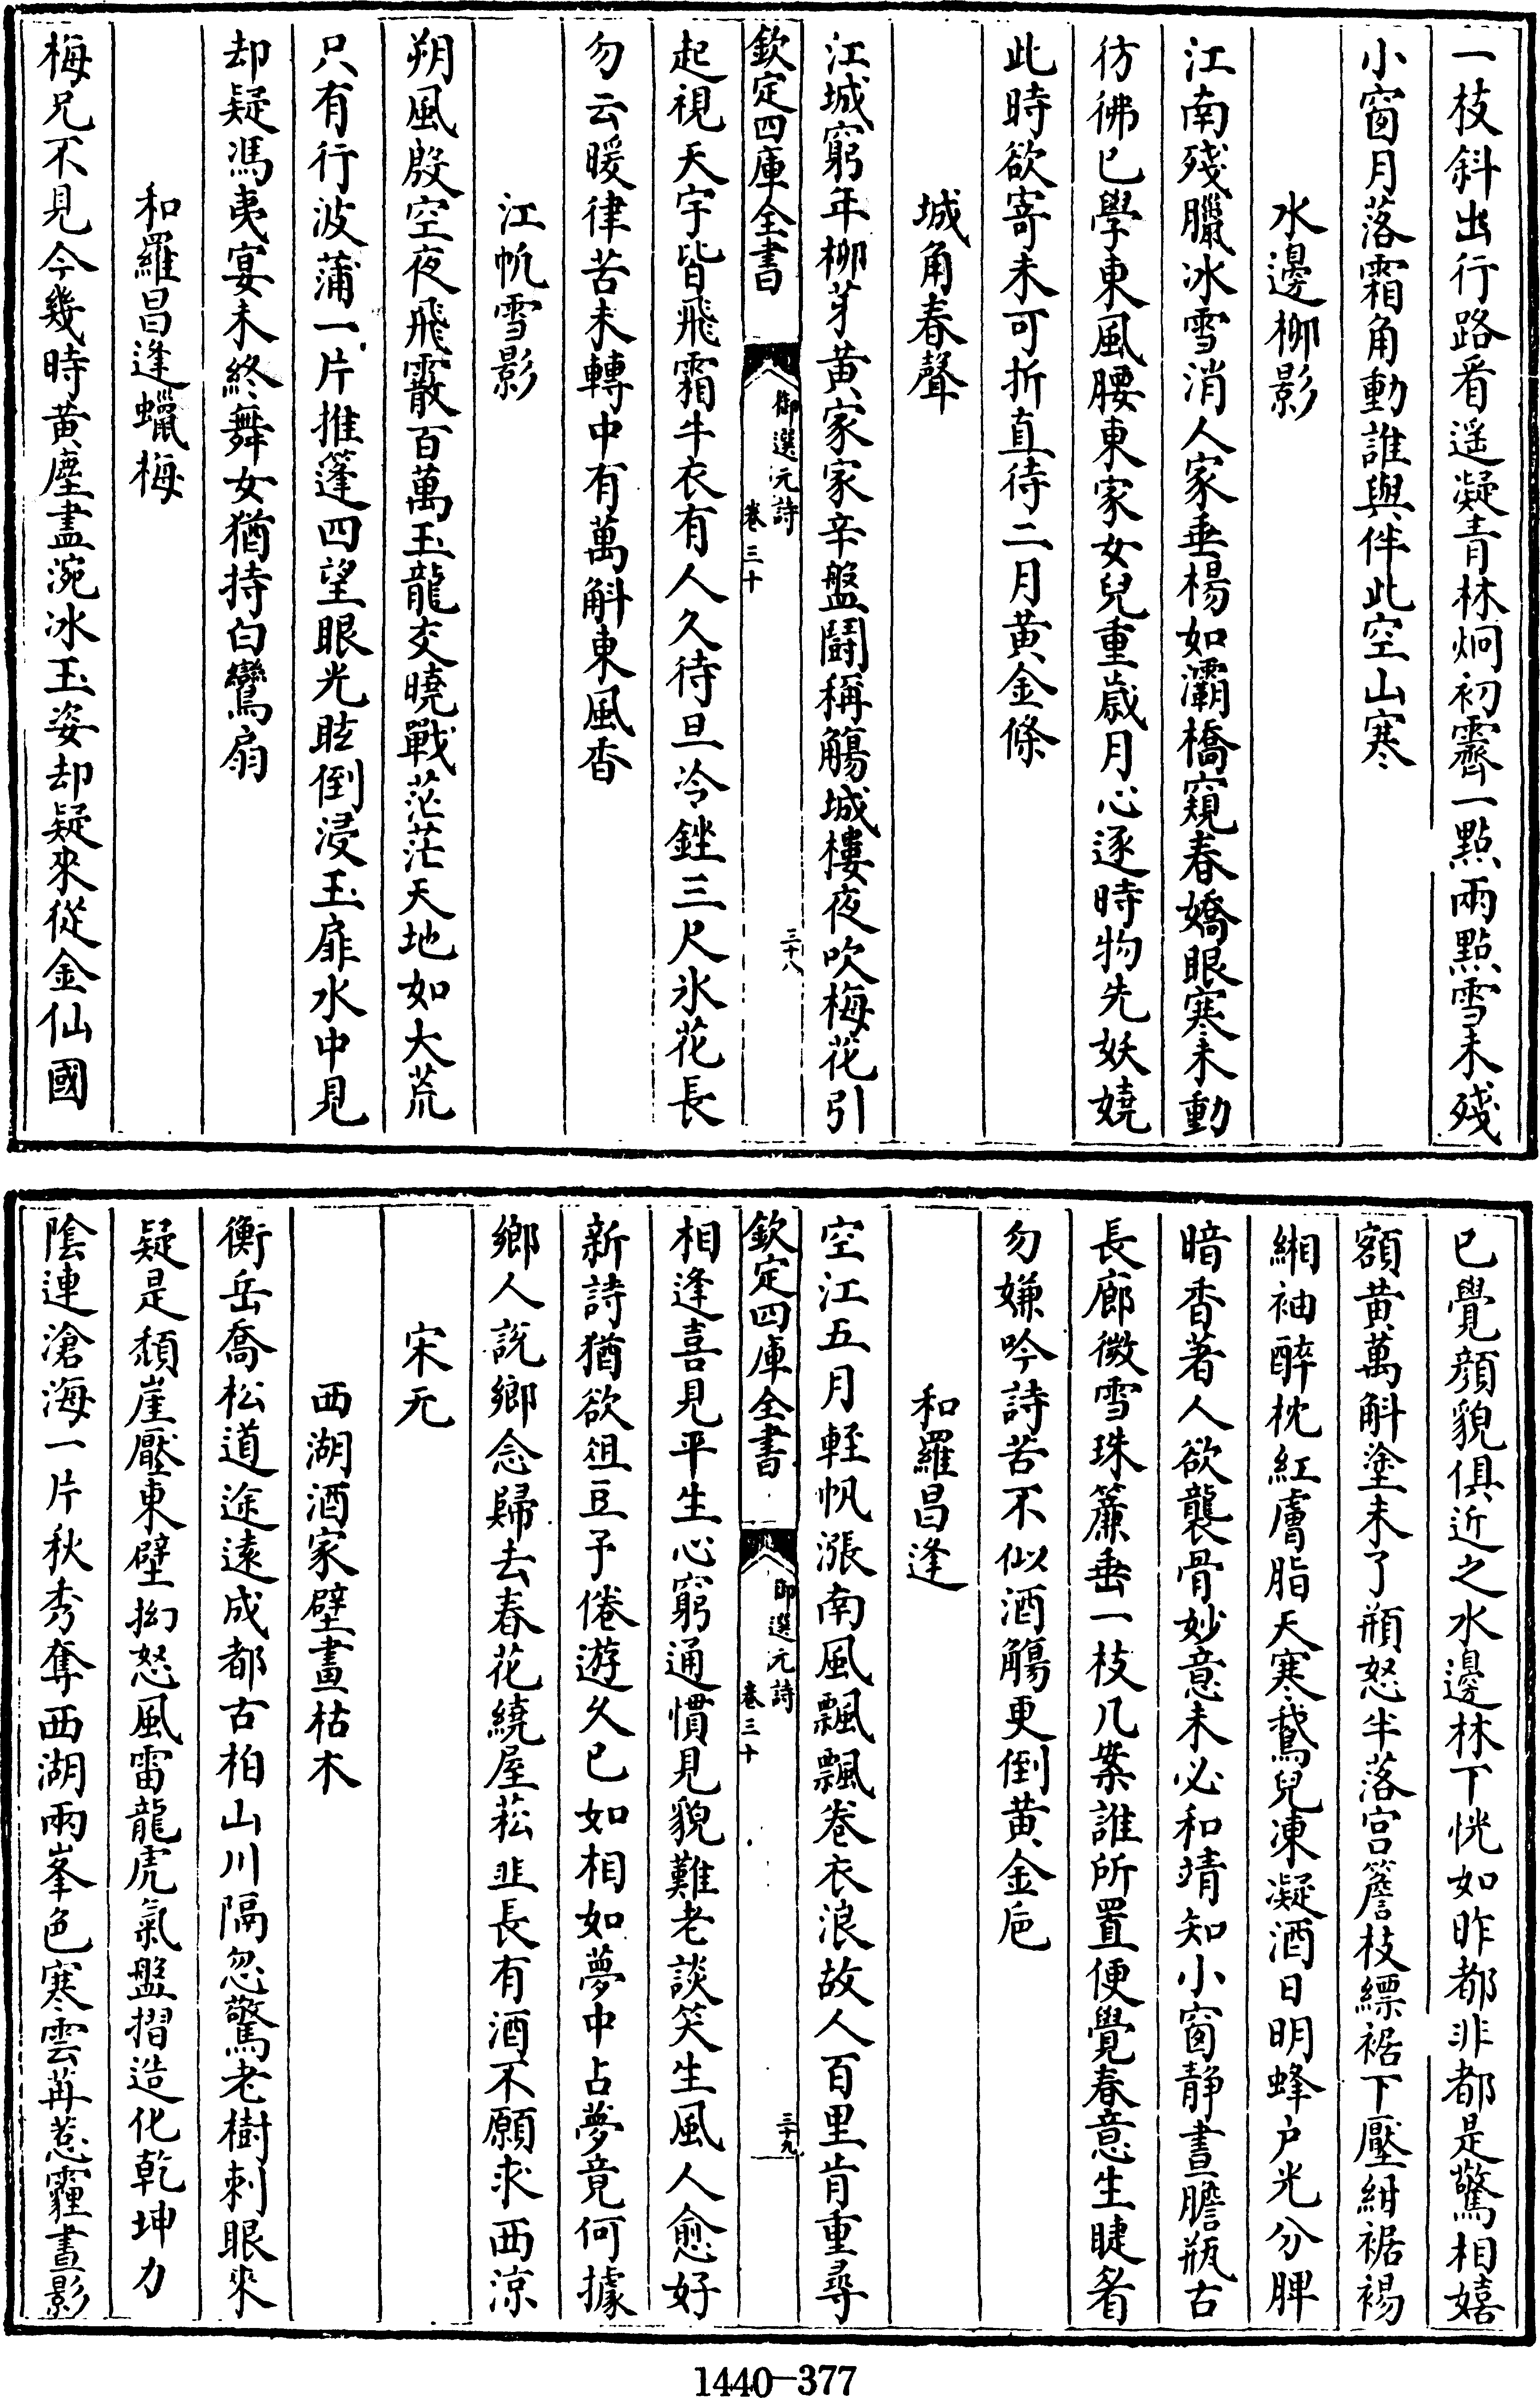 一枝斜出行路看遥凝青林烱初霽一點兩點雪未殘
小窗月落霜角動誰與伴此空山寒
水邊柳影
江南殘臘冰雪消人家垂楊如灞橋窺春嬌眼寒未動
彷彿已學東風腰東家女兒重歲月心逐時物先妖嬈
此時欲寄未可折直待二月黄金條
城角春聲
江城窮年柳芽黄家家辛盤鬪稱觴城樓夜吹梅花引
欽定四庫全書 御選元詩 卷三十 三十八
起視天宇皆飛霜牛衣有人久待旦冷銼三尺氷花長
勿云暖律苦未轉中有萬斛東風香
江帆雪影
朔風殷空夜飛霰百萬玉龍交曉戰茫茫天地如大荒
只有行波蒲一片推篷四望眼光眩倒浸玉扉水中見
却疑馮夷宴未終舞女猶持白鸞扇
和羅昌逢蠟梅
梅兄不見今幾時黄塵盡涴冰玉姿却疑來從金仙國
已覺顔貌俱近之水邊林下恍如昨都非都是驚相嬉
額黄萬斛塗未了頩怒半落宫簷枝縹裾下壓紺裾裼
緗袖醉枕紅膚脂天寒鵞兒凍凝酒日明蜂户光分脾
暗香著人欲襲骨妙意未必和靖知小窗静晝膽瓶古
長廊微雪珠簾垂一枝几案誰所置便覺春意生睫眉
勿嫌吟詩苦不似酒觴更倒黄金巵
和羅昌逢
空江五月輕帆漲南風飄飄卷衣浪故人百里肯重尋
欽定四庫全書 御選元詩 卷三十 三十九
相逢喜見平生心窮通慣見貌難老談笑生風人愈好
新詩猶欲俎豆予倦遊久已如相如夢中占夢竟何據
鄉人説鄉念歸去春花繞屋菘韭長有酒不願求西涼
宋无
西湖酒家壁畫枯木
衡岳喬松道途遠成都古柏山川隔忽驚老樹刺眼來
疑是頽崖壓東壁拗怒風雷龍虎氣盤摺造化乾坤力
陰連滄海一片秋秀奪西湖兩峯色寒雲苒惹霾晝影
1440-377